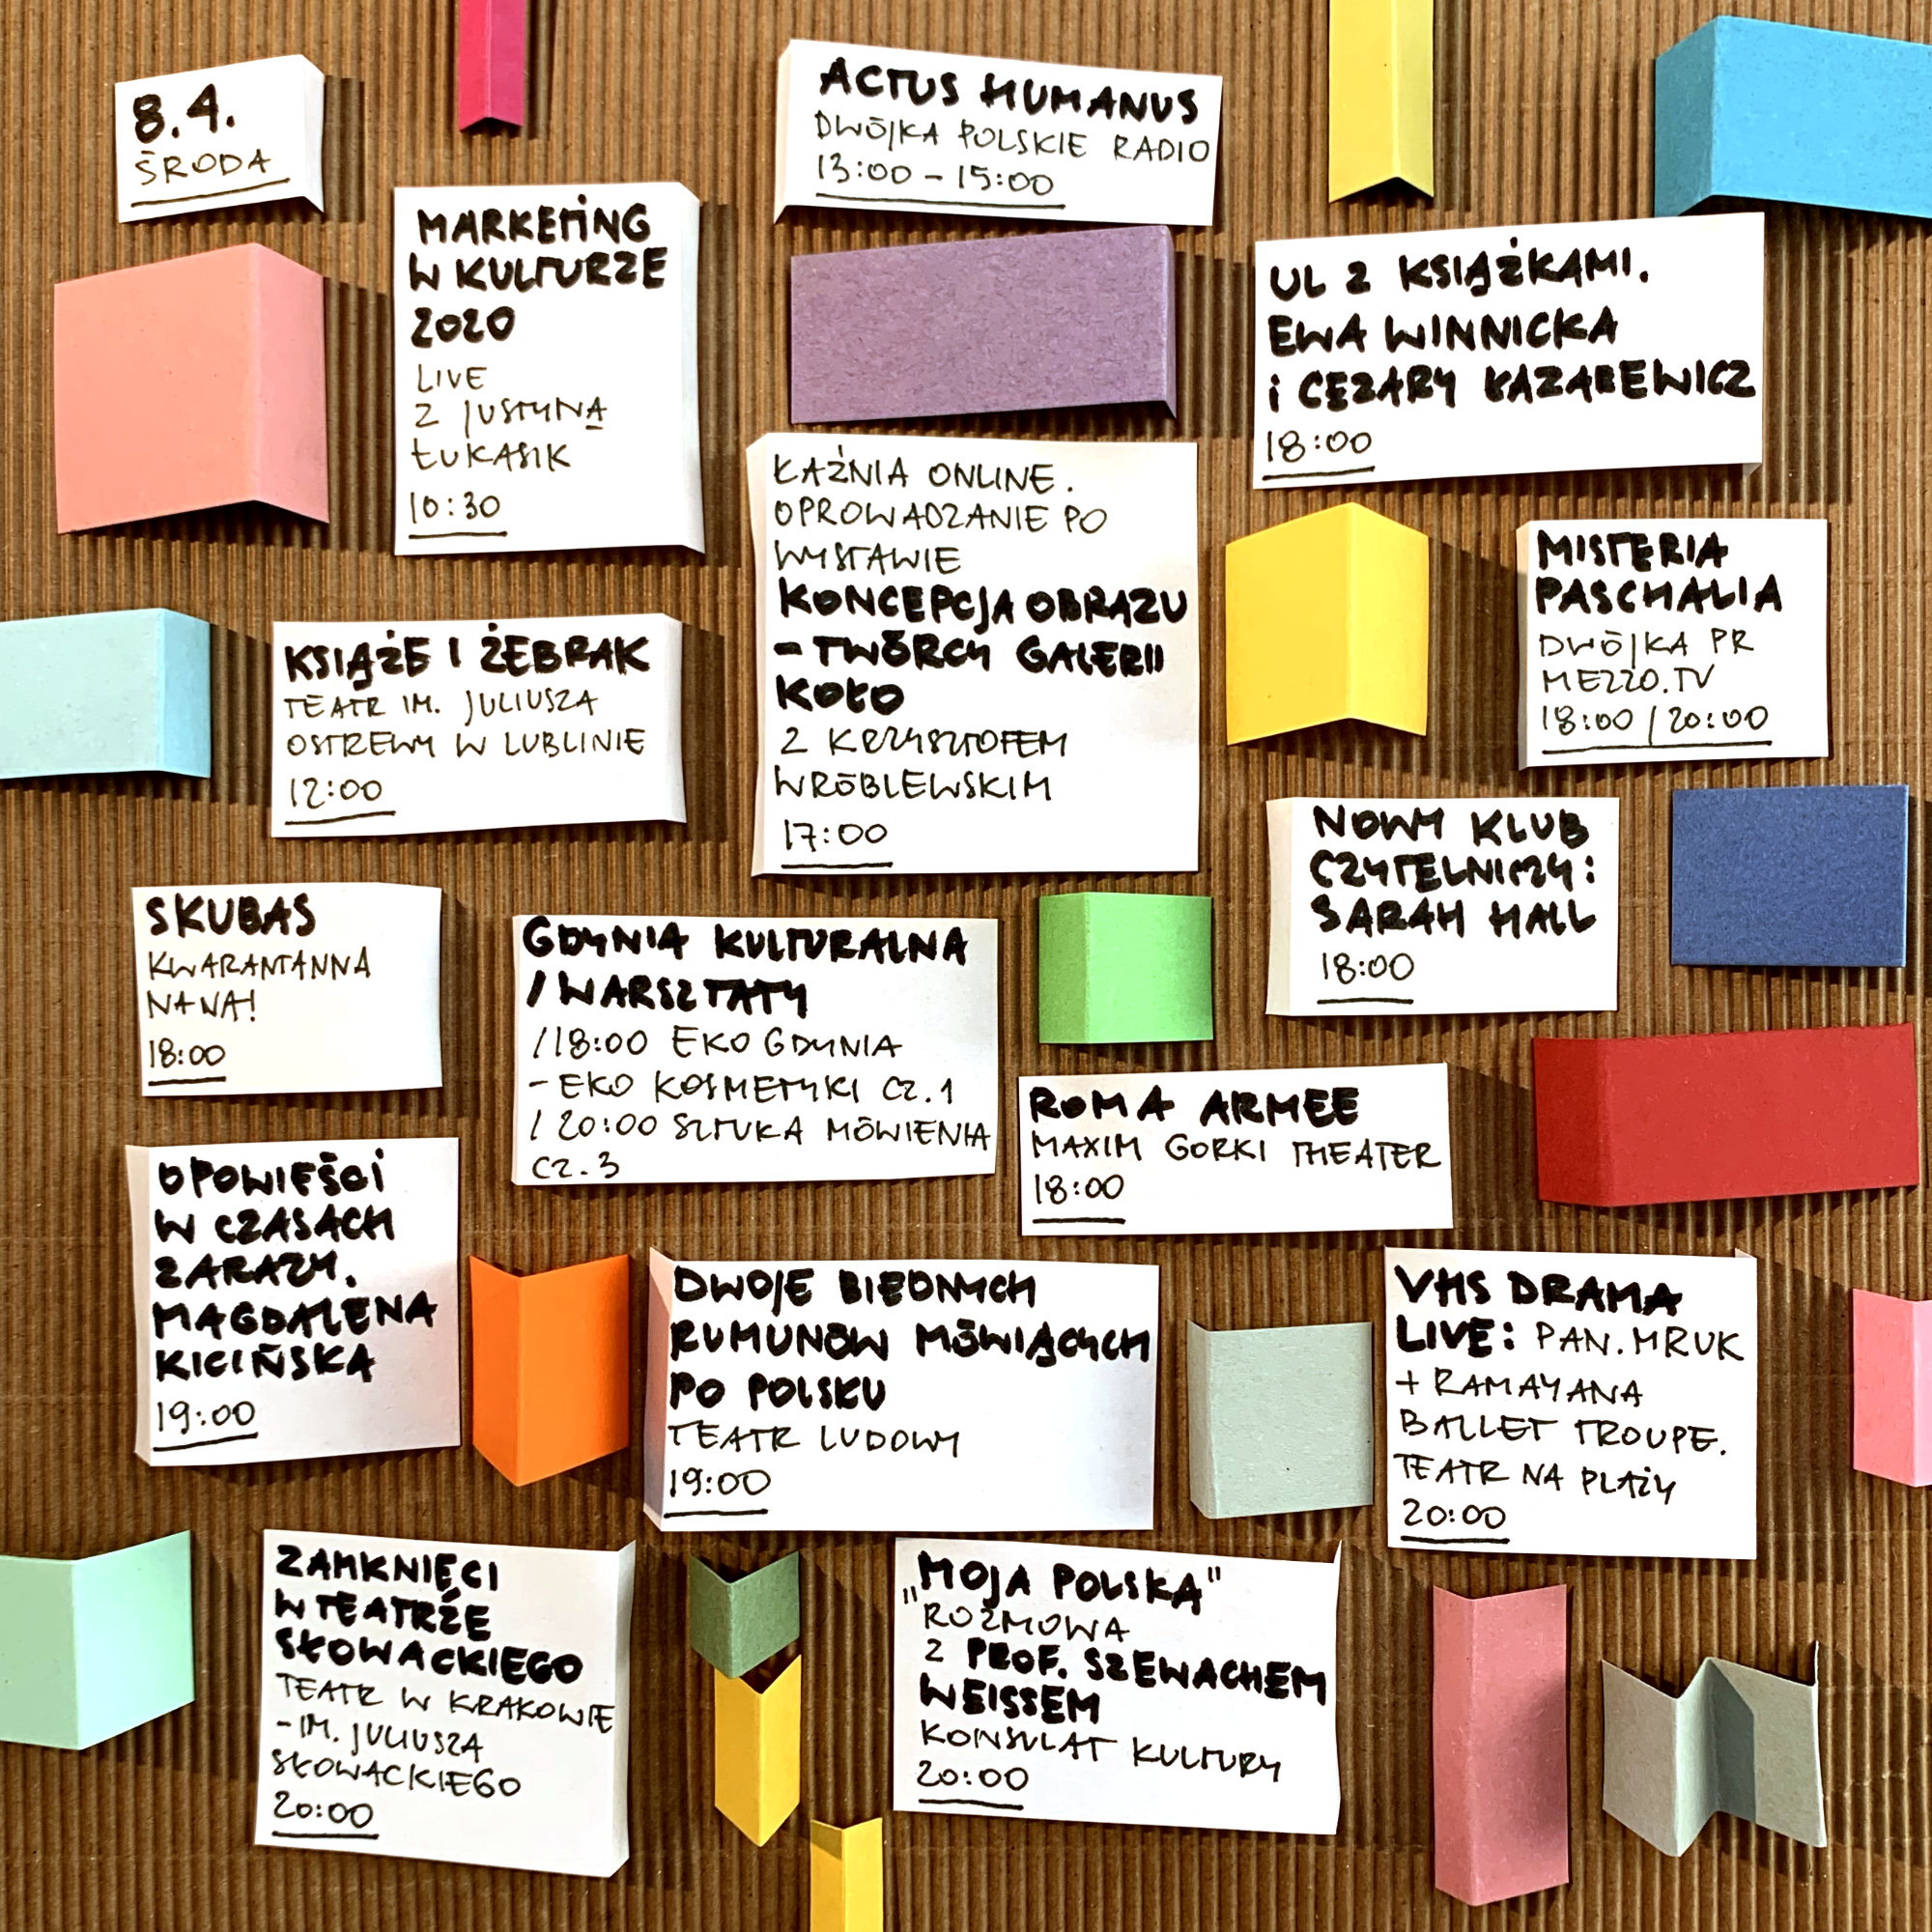 8.4.
ŚRODA
ACTUS HUMANUS
DWÓJKA POLSKIE RADIO
13:00 – 15:00
MARKETING
W KULTURZE
2020
LIVE
Z JUSTYNĄ
ŁUKASIK
10:30
UL Z KSIĄŻKAMI.
EWA WINNICKA
i CEZARY ŁAZAREWICZ
18:00
ŁAŹNIA ONLINE.
OPROWADZANIE PO
WYSTAWIE
KONCEPCJA OBRAZU
– TWÓRCY GALERII
KOŁO
Z KRZYSZTOFEM
WRÓBLEWSKIM
17:00
MISTERIA
PASCHALIA
DWÓJKA PR
MEZZO.TV
18:00 / 20:00
KSIĄŻE I ŻEBRAK
TEATR IM. JULIUSZA
OSTREWY W LUBLINIE
12:00
NOWY KLUB
CZYTELNICZY:
SARAH HALL
18:00
SKUBAS
KWARANTANNA
NA NA!
18:00
GDYNIA KULTURALNA
/ WARSZTATY
/ 18:00 EKO GDYNIA
– EKO KOSMETYKI CZ. 1
/ 20:00 SZTUKA MÓWIENIA
CZ. 3
ROMA ARMEE
MAXIM GORKI THEATER
18:00
OPOWIEŚCI
W CZASACH
ZARAZY.
MAGDALENA
KICIŃSKA
19:00
DWOJE BIEDNYCH
RUMUNÓW MÓWIĄCYCH
PO POLSKU
TEATR LUDOWY
19:00
VHS DRAMA
LIVE: PAN.MRUK
+ RAMAYANA
BALLET TROUPE.
TEATR NA PLAŻY
20:00
ZAMKNIĘCI
W TEATRZE
SŁOWACKIEGO
TEATR W KRAKOWIE
– IM. JULIUSZA
SŁOWACKIEGO
20:00
„MOJA POLSKA"
ROZMOWA
Z PROF. SZEWACHEM
WEISSEM
KONSULAT KULTURY
20:00